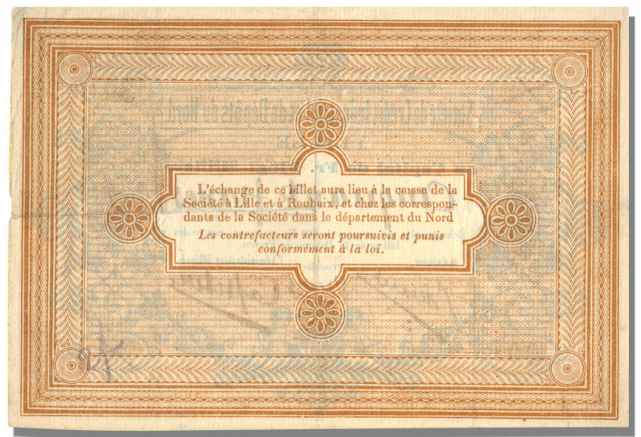 L'échange de ce billet aura lieu à la caisse de la
Société à Lille et à Roubaix, et chez les correspon-
dants de la Société dans le département du Nord
Les contrefacteurs seront poursuivis et punis
conformément à la loi.